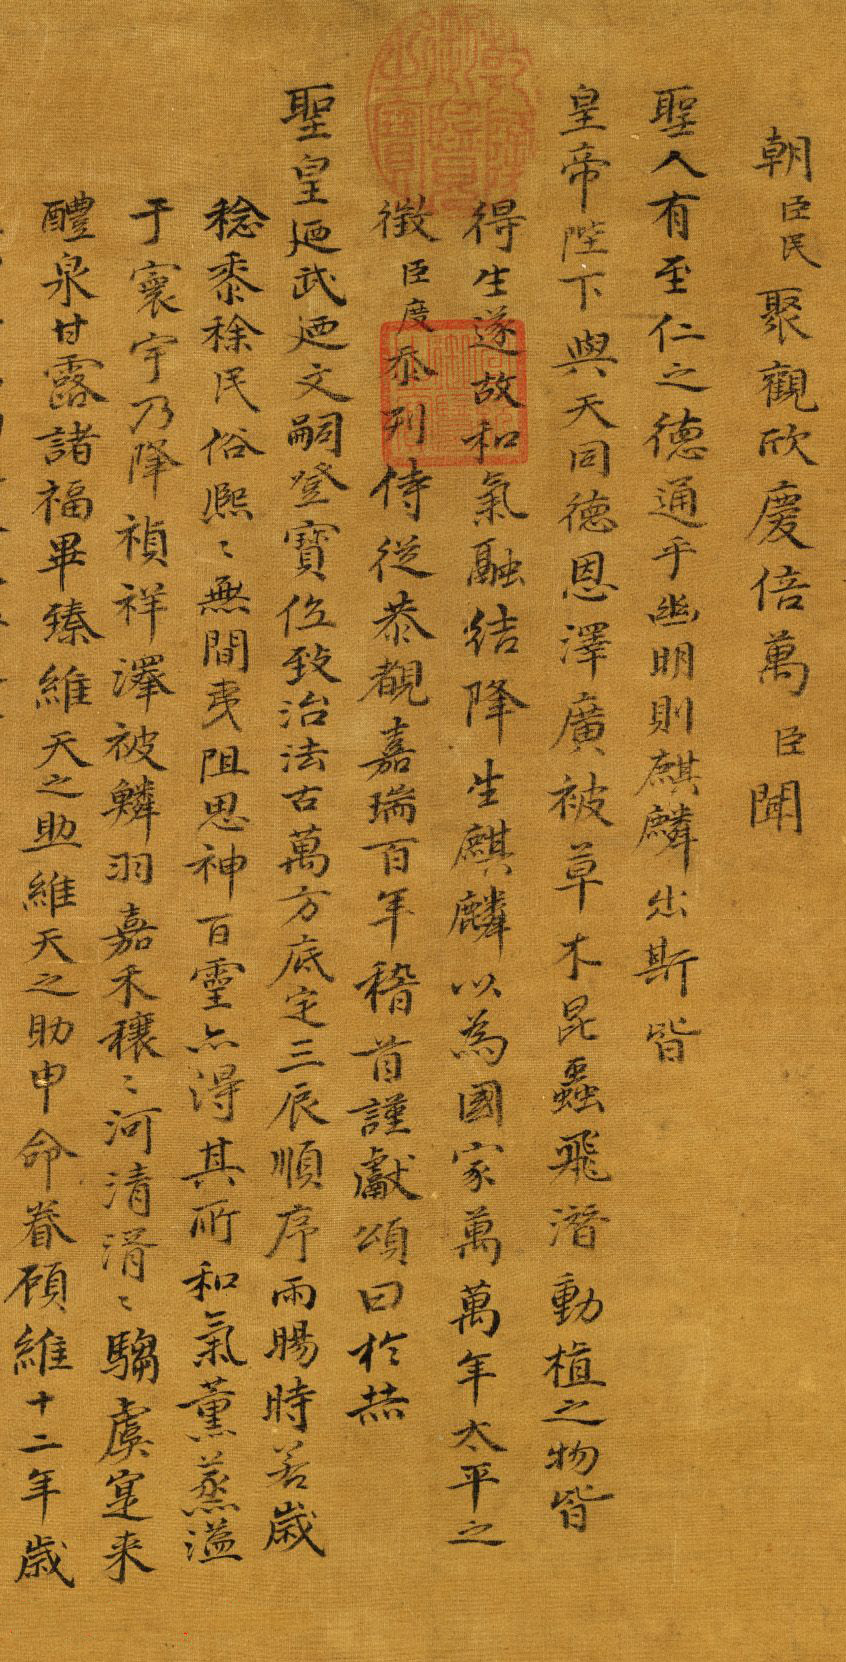 朝臣民聚觀欣慶倍萬臣聞
聖人有至仁之德通乎幽明則麒麟出斯皆
皇帝陛下與天同德恩澤廣被草木昆蟲飛潛動植之物皆
得生遂故和氣融結降生麒麟以為國家萬萬年太平之
徵臣度忝列侍從恭覩嘉瑞百年稽首謹獻頌曰於赫
聖皇迺武迺文嗣登寶位致治法古萬方底定三辰順序雨暘時若歲
稔黍稌民俗熙〻無間夷阻思神百靈亦得其所和氣薰蒸溢
于寰宇乃降禎祥澤被鱗羽嘉禾穰〻河清湑〻騶虞寔来
醴泉甘露諸福畢臻維天之助維天之助申命眷顧維十二年歲
乾隆御覽之寶